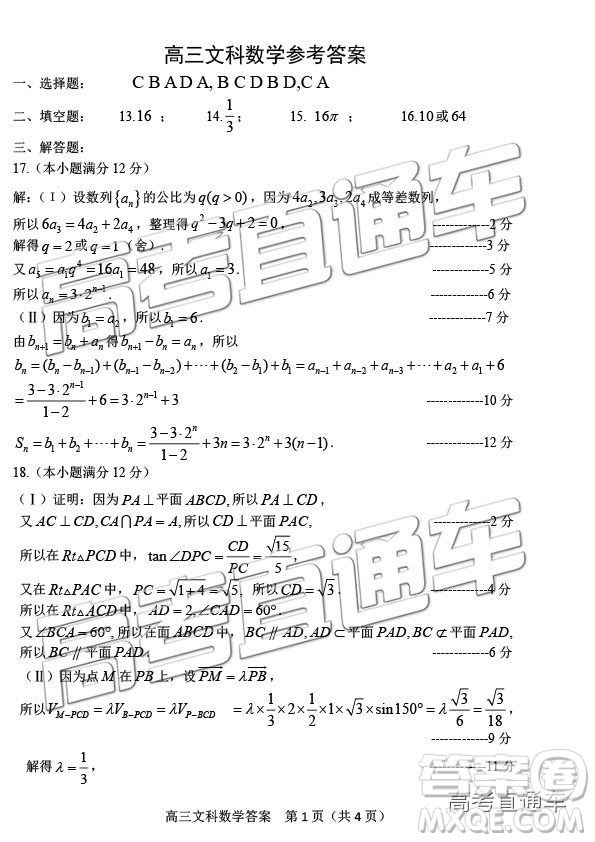 高三文科数学参考答案
一、选择题： C B A D A, B C D B D,C A
二、填空题： 13.16 ； 14.1/3； 15. 16π ； 16.10或64
三、解答题：
17.（本小题满分 12 分）
解：（Ⅰ）设数列{aₙ}的公比为q(q>0)，因为4a₂,3a₃,2a₄成等差数列，
所以6a₃=4a₂+2a₄，整理得q²-3q+2=0， -------------2 分
解得q=2或q=1（舍）． -------------3 分
又a₅=a₁q⁴=16a₁=48，所以a₁=3． -------------5 分
所以aₙ=3·2ⁿ⁻¹． -------------6 分
（Ⅱ）因为b₁=a₂，所以b₁=6． -------------7 分
由bₙ₊₁=bₙ+aₙ得bₙ₊₁-bₙ=aₙ，所以
bₙ=(bₙ-bₙ₋₁)+(bₙ₋₁-bₙ₋₂)+⋯+(b₂-b₁)+b₁=aₙ₋₁+aₙ₋₂+aₙ₋₃+⋯+a₂+a₁+6
=(3-3·2ⁿ⁻¹)/(1-2)+6=3·2ⁿ⁻¹+3 -------------10 分
Sₙ=b₁+b₂+⋯+bₙ=(3-3·2ⁿ)/(1-2)+3n=3·2ⁿ+3(n-1)． -------------12 分
18.（本小题满分 12 分）
（Ⅰ）证明：因为PA⊥平面ABCD,所以PA⊥CD，
又AC⊥CD,CA∩PA=A,所以CD⊥平面PAC, -------------2 分
所以在Rt△PCD中，tan∠DPC=CD/PC=√15/5，
又在Rt△PAC中，PC=√(1+4)=√5, 所以CD=√3． -------------4 分
所以在Rt△ACD中，AD=2,∠CAD=60°．
又∠BCA=60°,所以在面ABCD中，BC∥AD,AD⊂平面PAD,BC⊄平面PAD,
所以BC∥平面PAD． -------------6 分
（Ⅱ）因为点M在PB上，设PM=λPB，
所以V_{M-PCD}=λV_{B-PCD}=λV_{P-BCD} =λ×1/3×2×1/2×1×√3×sin150°=λ√3/6=√3/18，
-------------9 分
解得λ=1/3， -------------11 分
高三文科数学答案 第 1 页（共 4 页）
高考直通车
高考直通车
高考直通车
作业帮答案